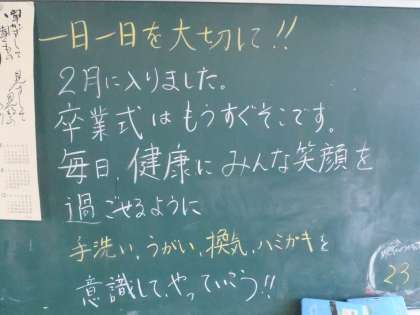 一日一日を大切に!!
2月に入りました。
卒業式はもうすぐそこです。
毎日、健康にみんな笑顔を
過ごせるように
手洗い、うがい、換気、ハミガキを
意識して、やっていこう!!
23